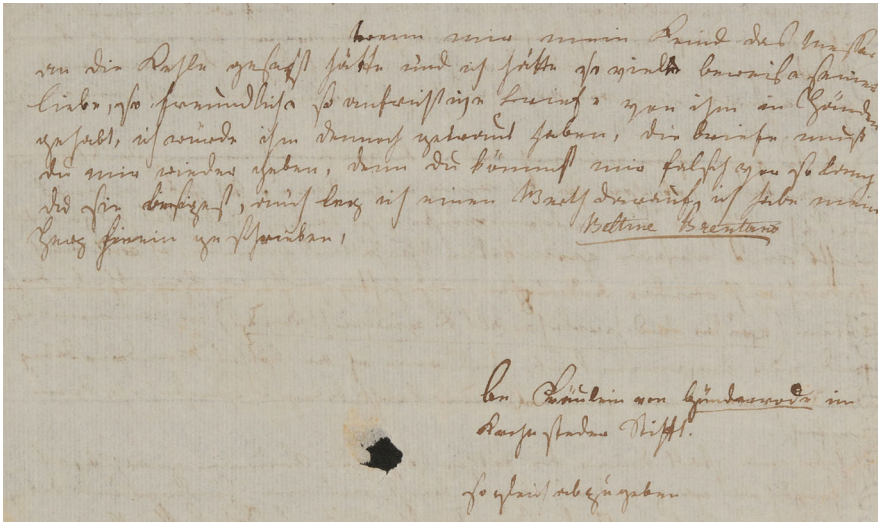 wenn mir mein Kind das Messer
an die Kehle gesezt hätte und ich hätte so viele beweise seiner
liebe, so freundliche so aufrichtige briefe von ihm in Händen
gehabt, ich würde ihm dennoch getraut haben, die briefe must
du mir wieder geben, denn du kömmst mir falsch vor so lang
du sie besizest, auch leg ich einen Werth darauf, ich habe mein
Herz hinein geschrieben,
Bettine Brentano
Fräulein von Günderrode im
stedter Stifft.
so gleich abzugeben